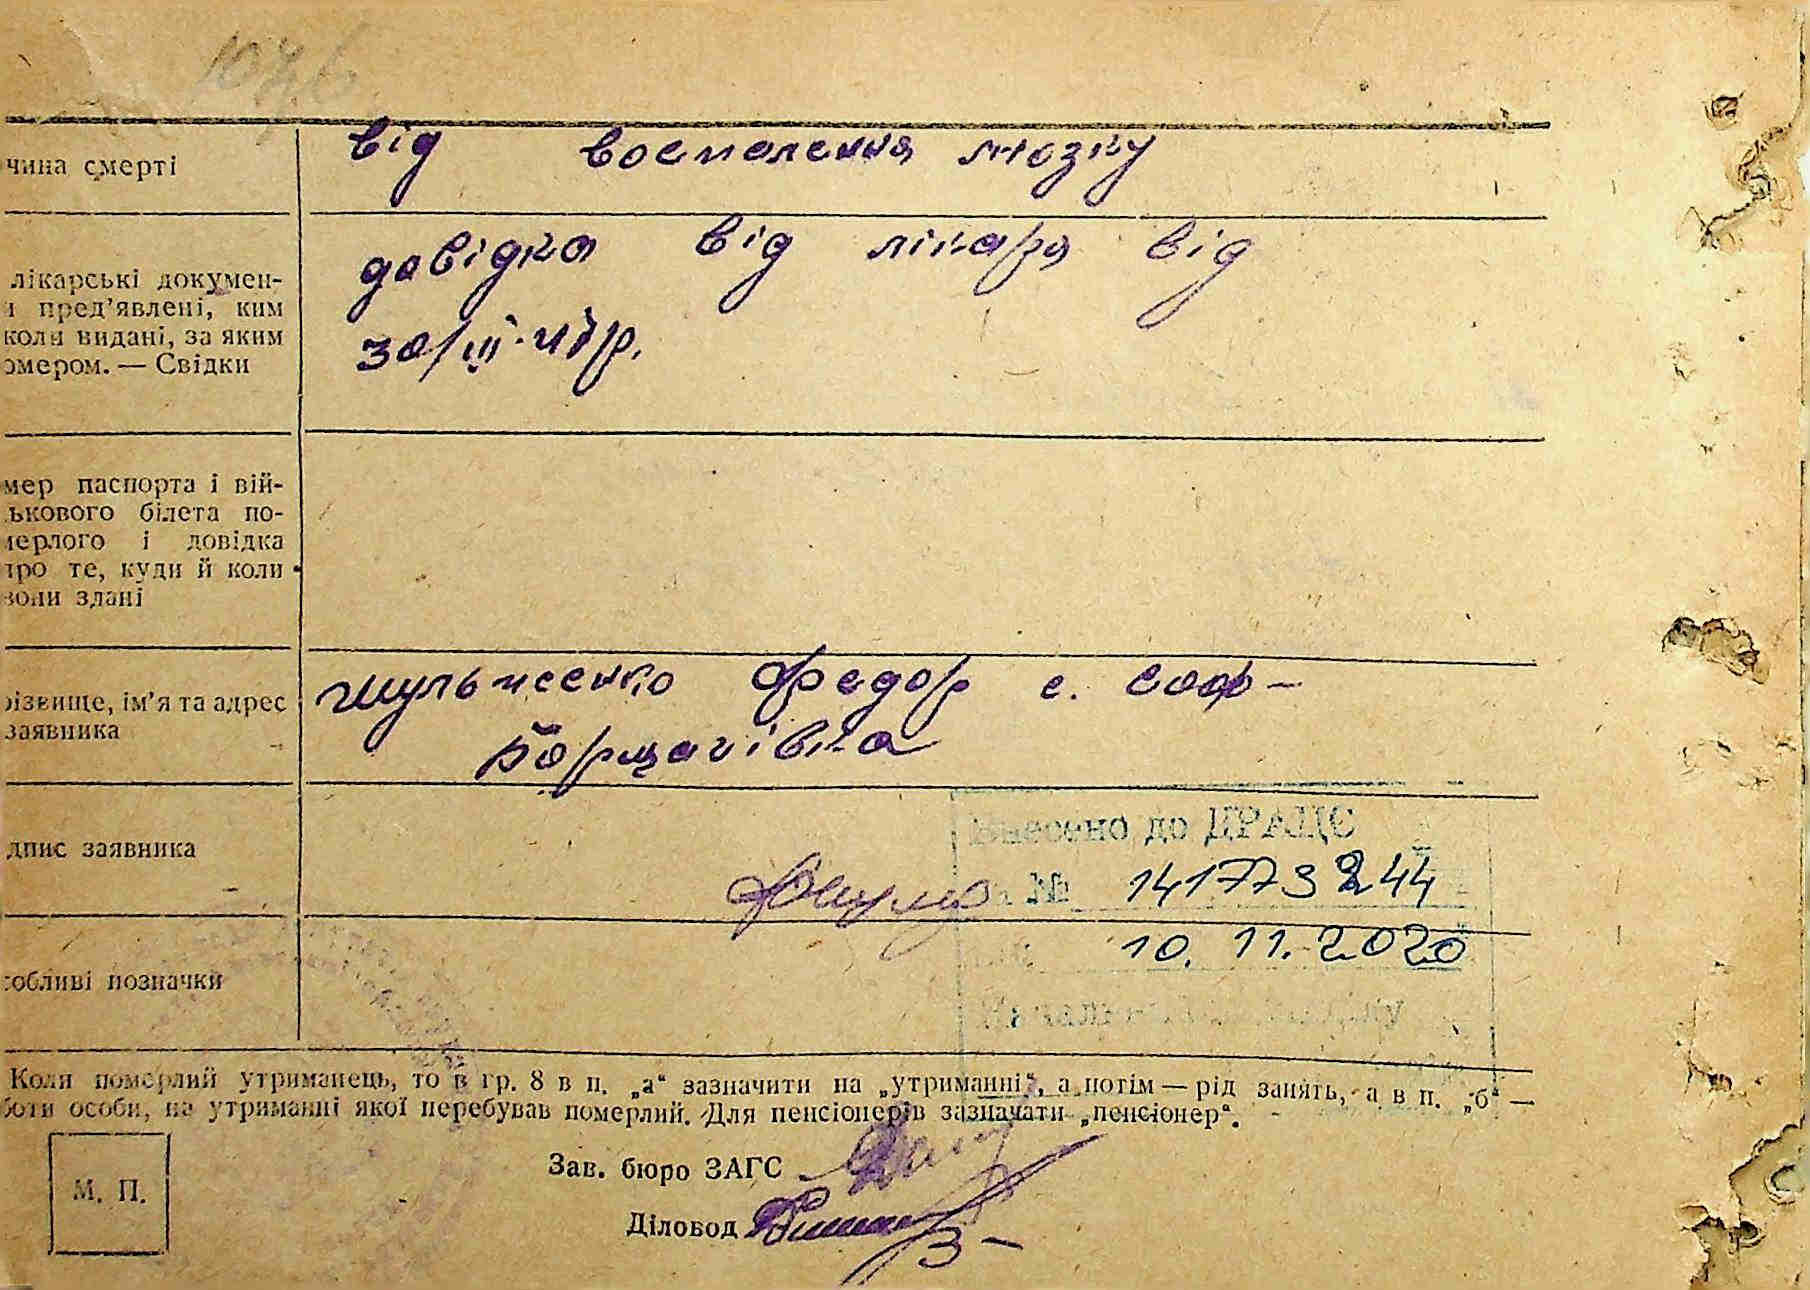 1076
чина смерті
від воспалення мозку
лікарські докумен-
и пред’явлені, ким
коли видані, за яким
омером. — Свідки
довідка від лікаря від
30/III-41р.
мер паспорта і вій-
ькового білета по-
мерлого і довідка
про те, куди й коли
вони здані
різвище, ім’я та адрес
заявника
Шульженко Федор с. Соф-
Борщагівка
дпис заявника
Внесено до ДРАЦС
№ 141773244
10. 11. 2020
собливі позначки
Коли померлий утриманець, то в гр. 8 в п. „а“ зазначити на „утриманні“, а потім — рід занять, а в п. „б“ —
боти особи, на утриманні якої перебував померлий. Для пенсіонерів зазначати „пенсіонер“.
М. П.
Зав. бюро ЗАГС
Діловод